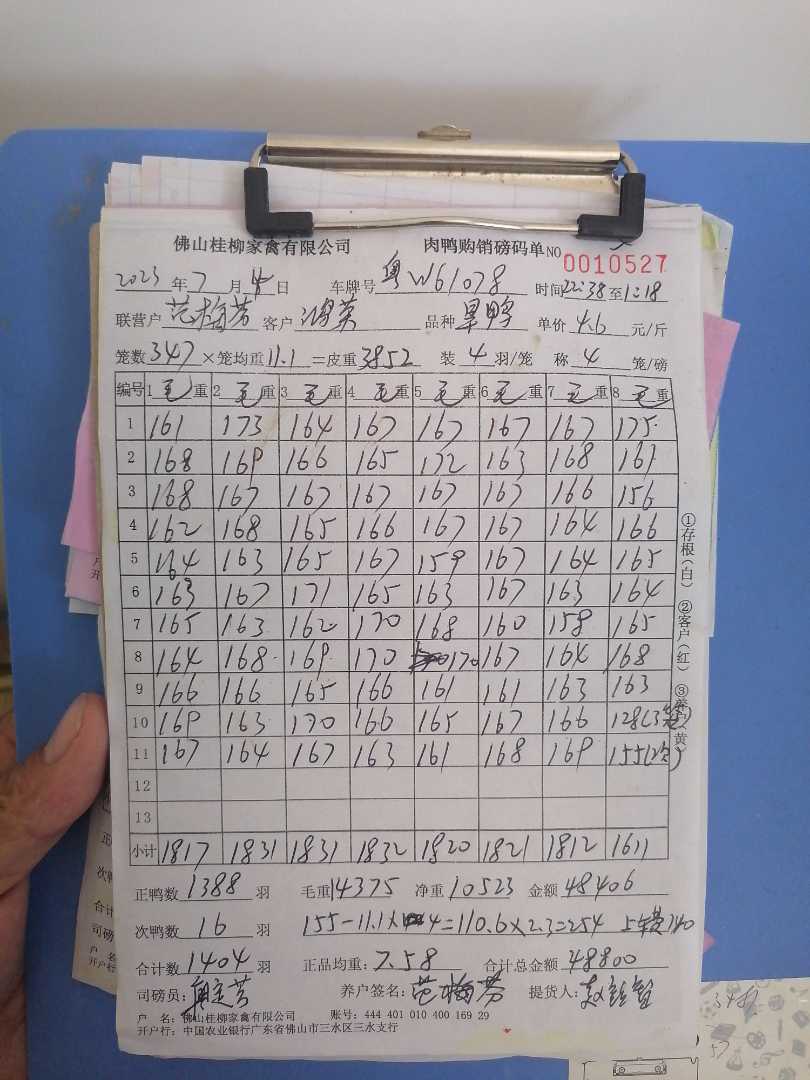 佛山桂柳家禽有限公司 肉鸭购销磅码单 NO 0010527
2023年7月4日 车牌号 粤W61078 时间22:38至1:18
联营户 范梅芳 客户 鸿英 品种 旱鸭 单价 4.6 元/斤
笼数347×笼均重11.1=皮重3852 装 4 羽/笼 称 4 笼/磅
编号 1毛重 2毛重 3毛重 4毛重 5毛重 6毛重 7毛重 8毛重
1 161 173 164 167 167 167 167 175
2 168 169 166 165 172 163 168 161
3 168 167 167 167 167 167 166 156
4 162 168 165 166 167 167 164 166
5 164 163 165 167 159 167 164 165
6 163 167 171 165 163 167 163 164
7 165 163 162 170 168 160 158 165
8 164 168 169 170 170 167 164 168
9 166 166 165 166 161 161 163 163
10 169 163 170 166 165 167 166 128(3笼)
11 167 164 167 163 161 168 169 155(次)
12
13
小计 1817 1831 1831 1832 1820 1821 1812 1611
正鸭数 1388 羽 毛重 14375 净重 10523 金额 48406
次鸭数 16 羽 155-11.1×4=110.6×2.3=254 140
合计数 1404 羽 正品均重：7.58 合计总金额 48800
司磅员： 养户签名：范梅芳 提货人：
户 名：佛山桂柳家禽有限公司 账号：444 401 010 400 169 29
开户行：中国农业银行广东省佛山市三水区三水支行
①存根(白) ②客户(红) ③养户(黄)